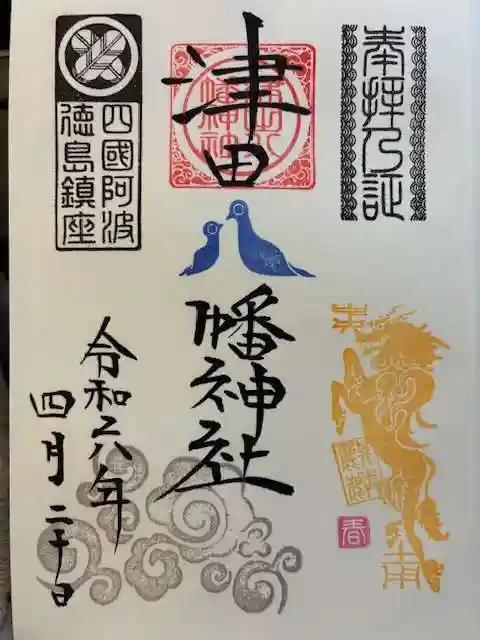 奉拝之証
津田
八
幡神社
四國阿波
徳島鎮座
令和六年
四月二十日
春